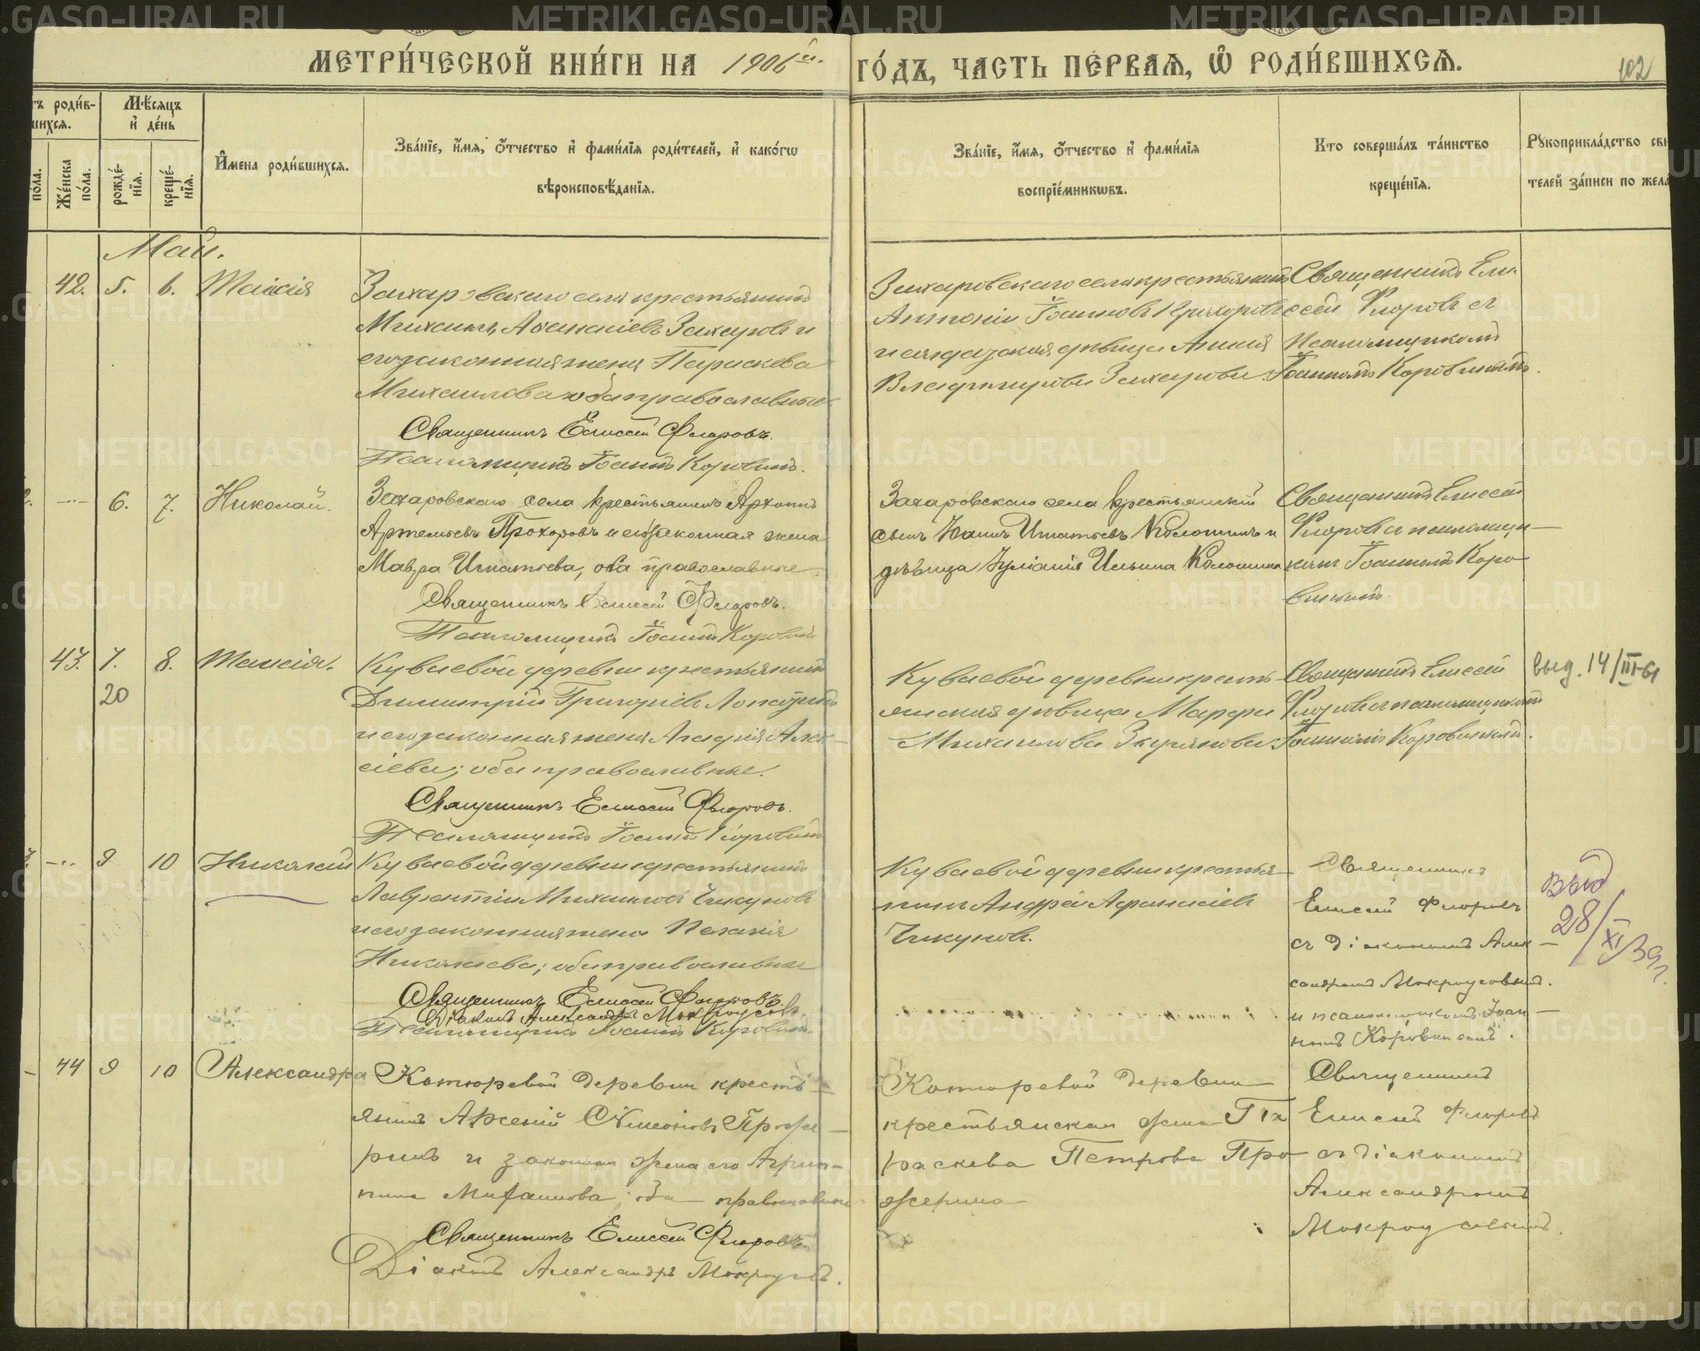 МЕТРИ́ЧЕСКОЙ КНИ́ГИ НА 1906й. ГО́ДЪ, ЧАСТЬ ПЕ́РВАЯ, Ѡ РОДИ́ВШИХСЯ.
102
тъ роди́в-
шихся.
Мѣ́сяцъ
и҆ де́нь
И҆мена роди́вшихся.
Зва́нїе, и҆́мя, ѻ҆́тчество и҆ фами́лїя роди́телей, и҆ како́гѡ
вѣроисповѣ́данїя.
Зва́нїе, и҆́мя, ѻ҆́тчество и҆ фами́лїя
воспрїе́мникѡвъ.
Кто соверша́лъ та́инство
креще́нїя.
Рꙋкоприкла́дство сви
телей за́писи по жела
по́ла.
Же́нска
по́ла.
рожде́-
нїя.
креще́-
нїя.
Май.
42. 5. 6. Таисія
Захаровскаго села крестьянинъ
Михаилъ Аѳанасіевъ Захаровъ и
его законная жена Параскева
Михаилова оба православные
Священникъ Елиссей Флоровъ.
Псаломщикъ Іоаннъ Коровинъ.
Захаровскаго села крестьянинъ
Антоній Іоанновъ Прохоровъ
и дѣвица Анна
Владимірова Захарова
Священникъ Ели-
сей Флоровъ съ
псаломщикомъ
Іоанномъ Коровинымъ.
6. 7. Николай.
Захаровскаго села крестьянинъ Архипъ
Артемьевъ Прохоровъ и его законная жена
Мавра Игнатьева, оба православные
Священникъ Елиссей Флоровъ.
Псаломщикъ Іоаннъ Коровинъ
Захаровскаго села крестьянскій
сынъ Іоаннъ Игнатьевъ Колошинъ и
дѣвица Іуліанія Ильина Колошина
Священникъ Елиссей
Флоровъ и псаломщи-
комъ Іоанномъ Коро-
винымъ.
43. 7. 8. Таисія.
20
Куваевой деревни крестьянинъ
Димитрій Григоріевъ
и его законная жена Агафія Алек-
сіева; оба православные.
Священникъ Елиссей Флоровъ.
Псаломщикъ Іоаннъ Коровинъ
Куваевой деревни кресть-
янская дѣвица Марфа
Михаилова
Священникъ Елиссей
Флоровъ и псаломщикомъ
Іоанномъ Коровинымъ.
выд. 14/III-61
9 10 Николай
Куваевой деревни крестьянинъ
Лаврентій Михаиловъ Чикуновъ
и его законная жена Пелагія
Николаева; оба православные
Священникъ Елиссей Флоровъ.
Діаконъ Александръ Мокроусовъ.
Псаломщикъ Іоаннъ Коровинъ.
Куваевой деревни крестья-
нинъ Андрей Аѳанасіевъ
Чикуновъ.
Священникъ
Елиссей Флоровъ
съ діакономъ Алек-
сандромъ Мокроусовымъ.
и псаломщикомъ Іоан-
номъ Коровинымъ.
выд
28/XI 39 г.
44 9 10 Александра
Котюревой деревни кресть-
янинъ Арсеній Симеоновъ Проже-
ринъ и законная жена его Агрип-
пина; оба православные
Священникъ Елиссей Флоровъ.
Діаконъ Александръ Мокроусовъ.
Котюревой деревни
крестьянская жена Па-
раскева Петрова Про-
жерина
Священникъ
Елисей Флоровъ
съ діакономъ
Александромъ
Мокроусовымъ.
METRIKI.GASO-URAL.RU